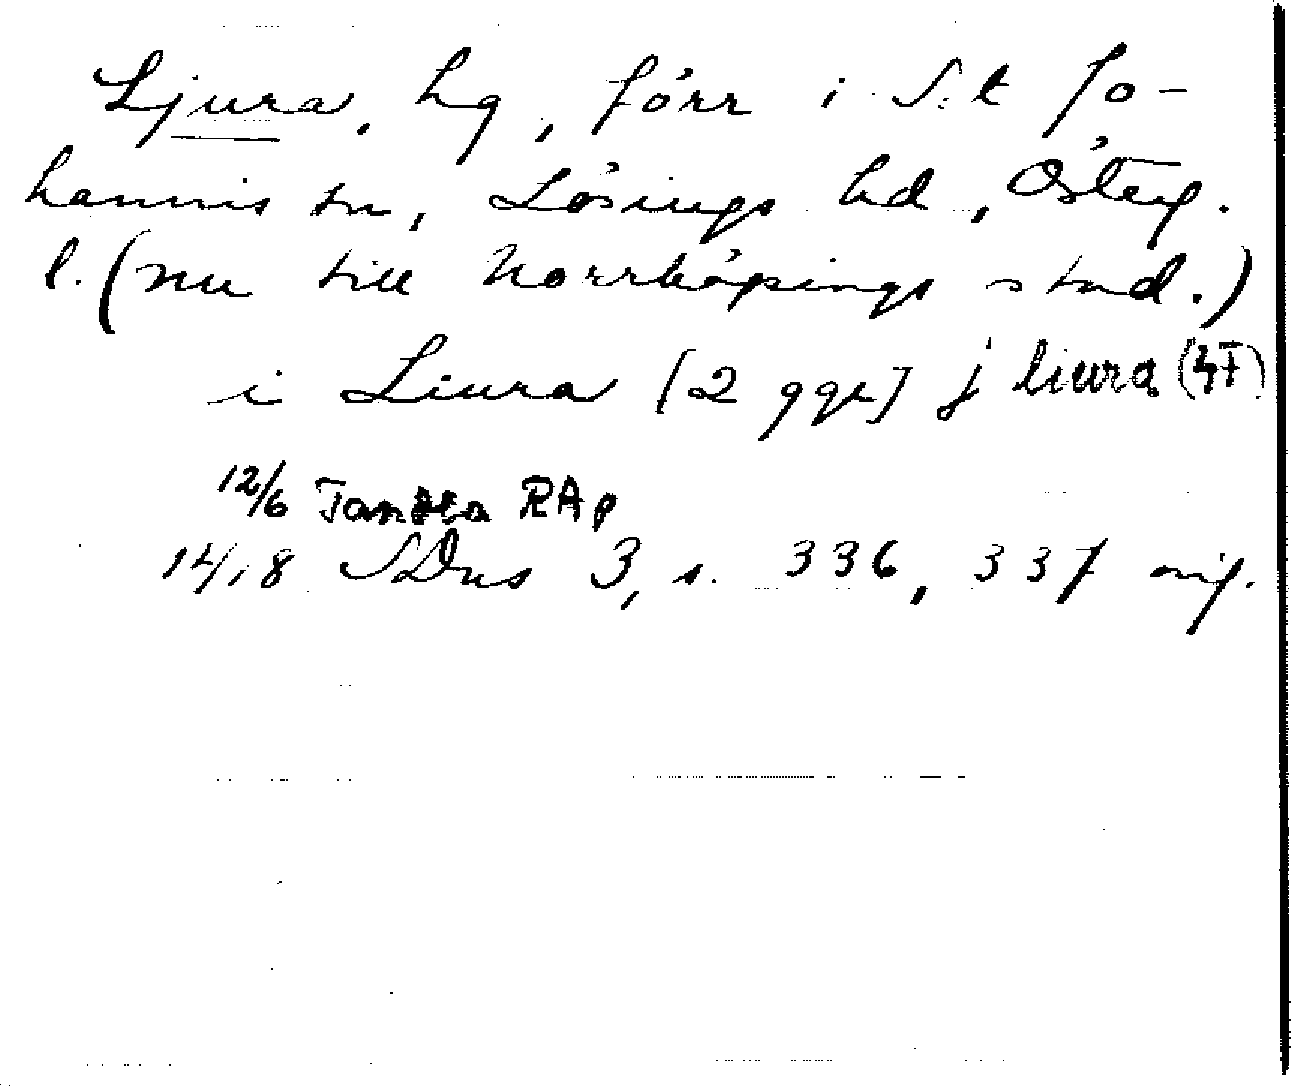 Ljura, hg, förr i S:t Jo-
hannis sn, Lösings hd, Österg.
l. (nu till Norrköpings stad.)
i Liura [2 ggr] j liura
12/6 RAp
1418 SDns 3, s. 336, 337